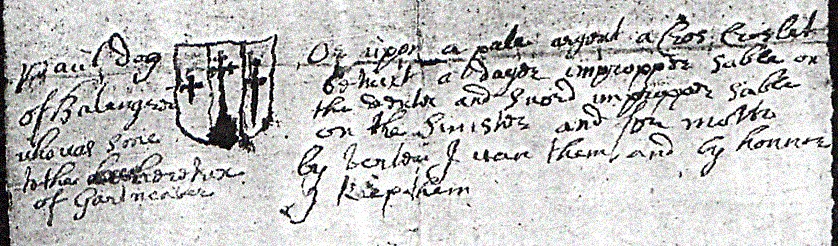 Paul Dog
of Balingrew
who was sone
to the heretrix
of Gartneaver
Or upon a pale argent a Cros Croslet
betwixt a dager impropper sable on
the dexter and sword impropper sable
on the sinister and for motto
by verteu I wan them, and by honnor
I keep them